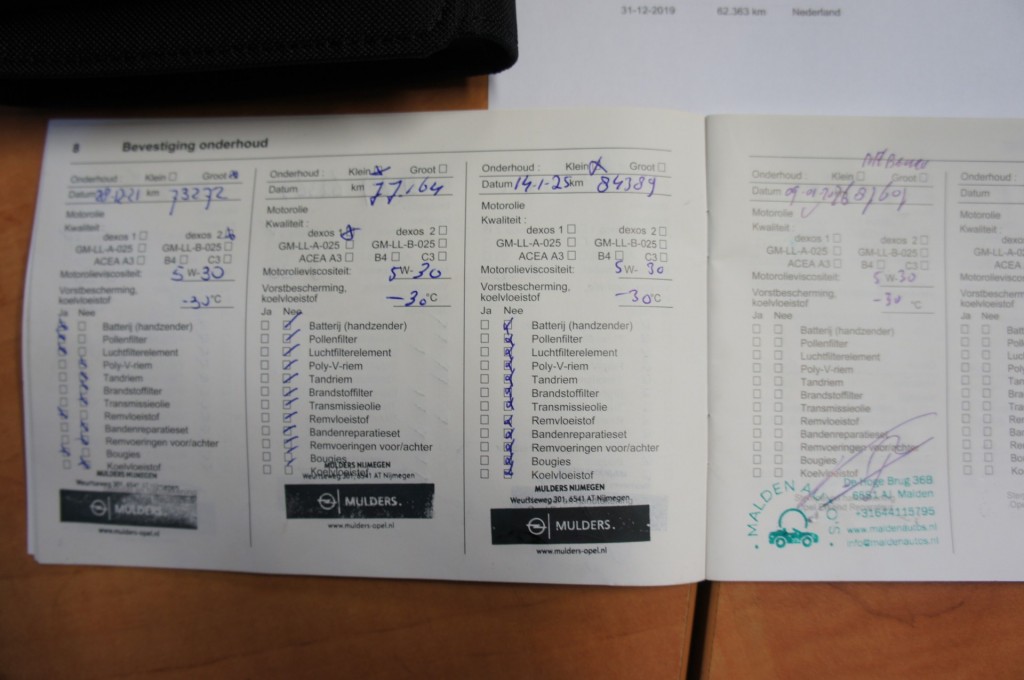 31-12-2019 62.363 km Nederland
8 Bevestiging onderhoud
Onderhoud : Klein Groot
Datum 28-12-21 km 73272
Motorolie
Kwaliteit :
dexos 1 dexos 2
GM-LL-A-025 GM-LL-B-025
ACEA A3 B4 C3
Motorolieviscositeit: 5 W-30
Vorstbescherming,
koelvloeistof -30°C
Ja Nee
Batterij (handzender)
Pollenfilter
Luchtfilterelement
Poly-V-riem
Tandriem
Brandstoffilter
Transmissieolie
Remvloeistof
Bandenreparatieset
Remvoeringen voor/achter
Bougies
Koelvloeistof
MULDERS NIJMEGEN
MULDERS.
www.mulders-opel.nl
Onderhoud : Klein Groot
Datum km 77.164
Motorolie
Kwaliteit :
dexos 1 dexos 2
GM-LL-A-025 GM-LL-B-025
ACEA A3 B4 C3
Motorolieviscositeit: 5W-30
Vorstbescherming,
koelvloeistof -30°C
Ja Nee
Batterij (handzender)
Pollenfilter
Luchtfilterelement
Poly-V-riem
Tandriem
Brandstoffilter
Transmissieolie
Remvloeistof
Bandenreparatieset
Remvoeringen voor/achter
Bougies
Koelvloeistof
MULDERS NIJMEGEN
Weurtseweg 301, 6541 AT Nijmegen
MULDERS.
www.mulders-opel.nl
Onderhoud : Klein Groot
Datum 14-1-25 km 84389
Motorolie
Kwaliteit :
dexos 1 dexos 2
GM-LL-A-025 GM-LL-B-025
ACEA A3 B4 C3
Motorolieviscositeit: 5 W- 30
Vorstbescherming,
koelvloeistof -30°C
Ja Nee
Batterij (handzender)
Pollenfilter
Luchtfilterelement
Poly-V-riem
Tandriem
Brandstoffilter
Transmissieolie
Remvloeistof
Bandenreparatieset
Remvoeringen voor/achter
Bougies
Koelvloeistof
MULDERS NIJMEGEN
Weurtseweg 301, 6541 AT Nijmegen
MULDERS.
www.mulders-opel.nl
Onderhoud : Klein Groot
Datum
Motorolie
Kwaliteit :
dexos 1 dexos 2
GM-LL-A-025 GM-LL-B-025
ACEA A3 B4 C3
Motorolieviscositeit: 5 W-30
Vorstbescherming,
koelvloeistof -30 °C
Ja Nee
Batterij (handzender)
Pollenfilter
Luchtfilterelement
Poly-V-riem
Tandriem
Brandstoffilter
Transmissieolie
Remvloeistof
Bandenreparatieset
Remvoeringen voor/achter
Bougies
Koelvloeistof
MALDEN AUTO'S
De Hoge Brug 36B
6581 AJ, Malden
+31644115795
www.maldenautos.nl
info@maldenautos.nl
Onderhoud
Datum
Motorolie
Kwaliteit :
GM-LL-A
Motorolie
Vorstbescherming
koelvloeistof
Ja Nee